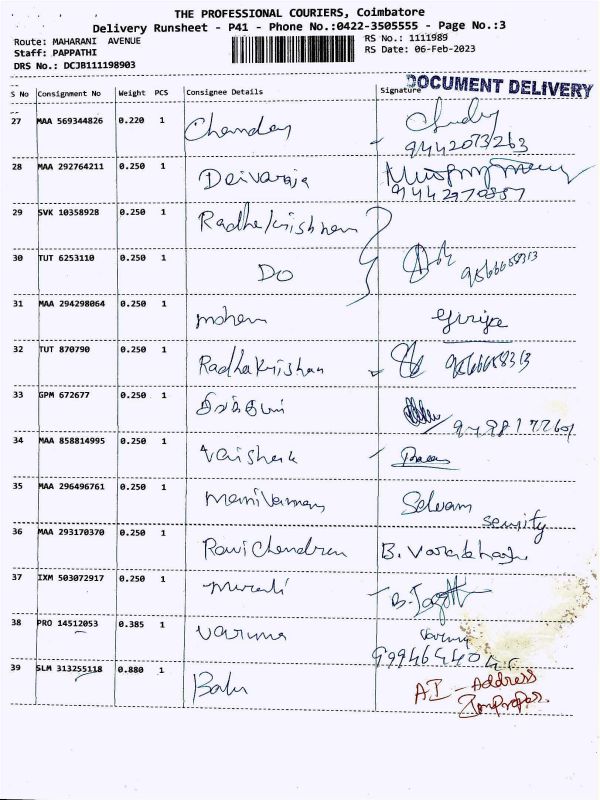 THE PROFESSIONAL COURIERS, Coimbatore
Delivery Runsheet - P41 - Phone No.:0422-3505555 - Page No.:3
Route: MAHARANI AVENUE RS No.: 1111989
Staff: PAPPATHI RS Date: 06-Feb-2023
DRS No.: DCJB111198903
DOCUMENT DELIVERY
S No Consignment No Weight PCS Consignee Details Signature
27 MAA 569344826 0.220 1 Chandra
9442073263
28 MAA 292764211 0.250 1 Deivaraja
9442770857
29 SVK 10358928 0.250 1 Radhakrishnan
30 TUT 6253110 0.250 1 DO 9566658313
31 MAA 294298064 0.250 1 mohan Girija
32 TUT 870790 0.250 1 Radhakrishnan 9566658313
33 GPM 672677 0.250 1
34 MAA 858814995 0.250 1 Vaishak
35 MAA 296496761 0.250 1 Manivannan Selvam
security
36 MAA 293170370 0.250 1 Ravichandran B.
37 IXM 503072917 0.250 1 murali B.
38 PRO 14512053 0.385 1 varuna
39 SLM 313255118 0.880 1 Balu AI - Address
Improper